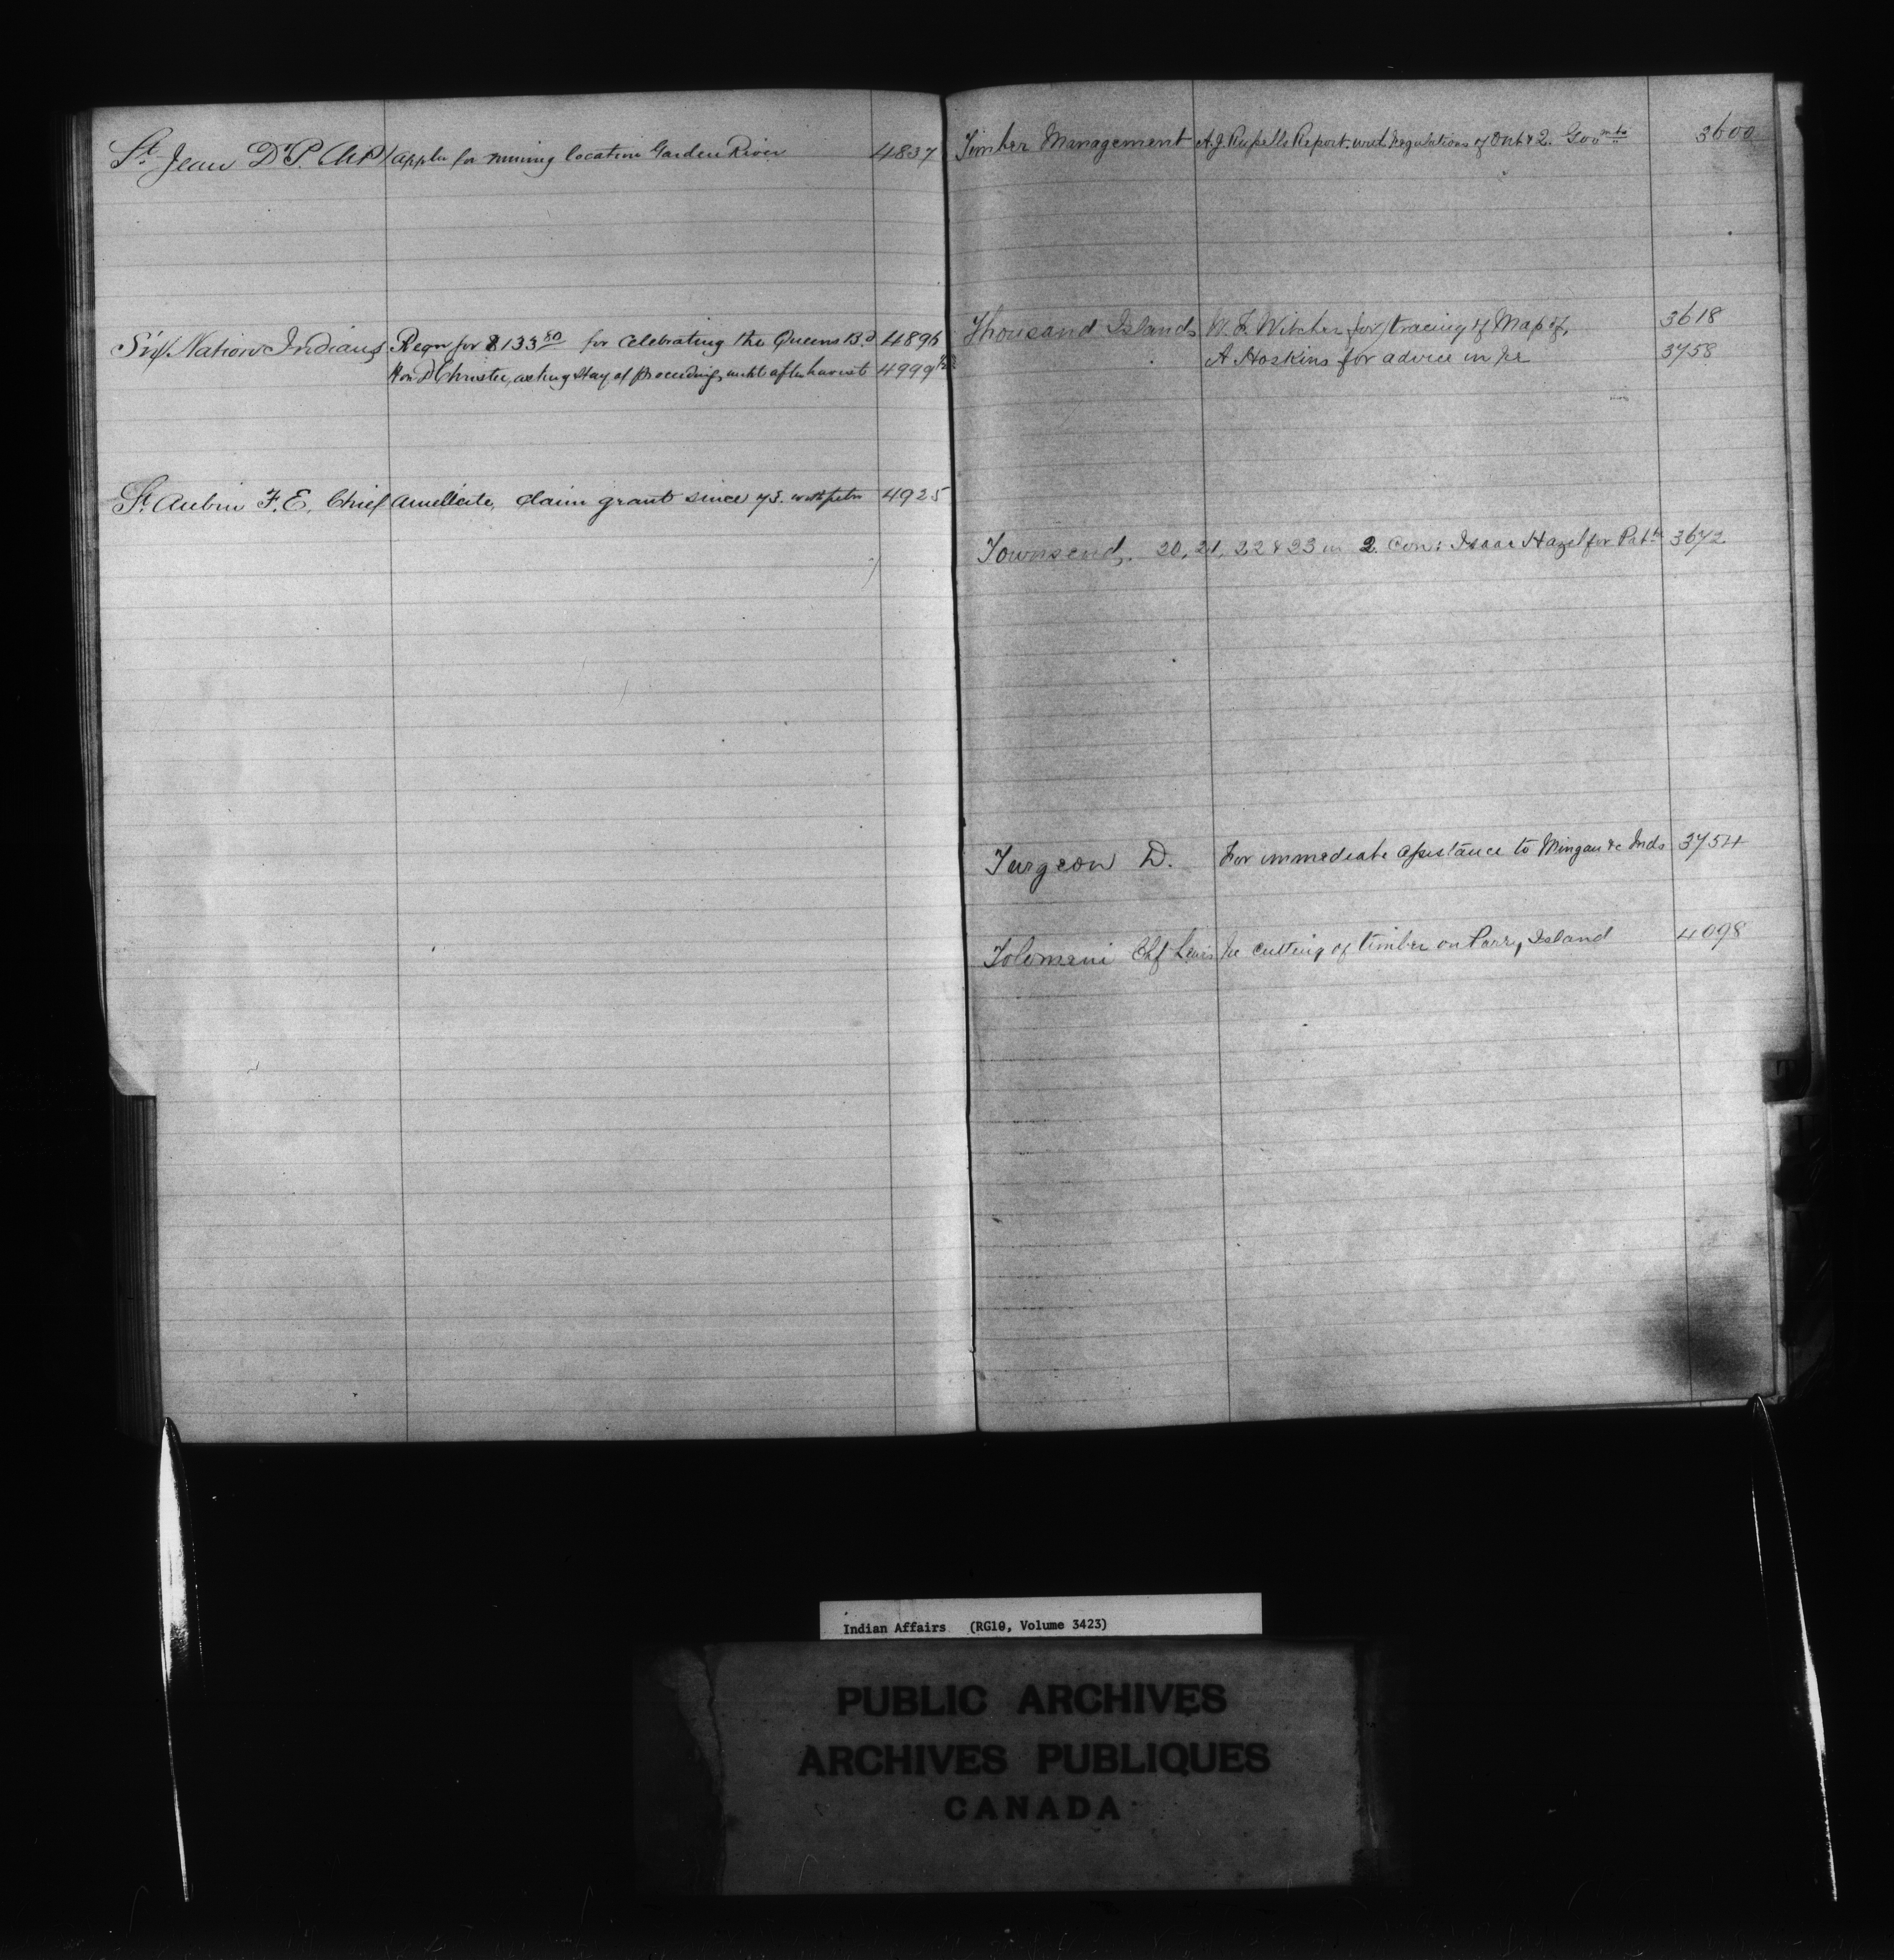 St. Jean Dr. P. M.P. appln for mining location Garden River 4837
Six Nation Indians Reqn for $133.80 for Celebrating the Queens B.d 4896
Hon D Christie, asking Stay of proceedings until after harvest 4999
St. Aubin F. E. Chief Amellcite, claim grant since 73. with petn 4925
Timber Management A. J. Russells Report. with regulations of Ont & Q. Govmts 3600
Thousand Islands W. F. Witcher for tracing of Map of, 3618
A Hoskins for advice in re 3758
Townsend, 20, 21, 22 & 23 in 2 Con: Isaac Hazel for Patt 3672
Turgeon D. For immediate assistance to Mingan &c Inds 3754
Tolomeni Chf Lewis re cutting of timber on Parry Island 4098
T
Indian Affairs (RG10, Volume 3423)
PUBLIC ARCHIVES
ARCHIVES PUBLIQUES
CANADA